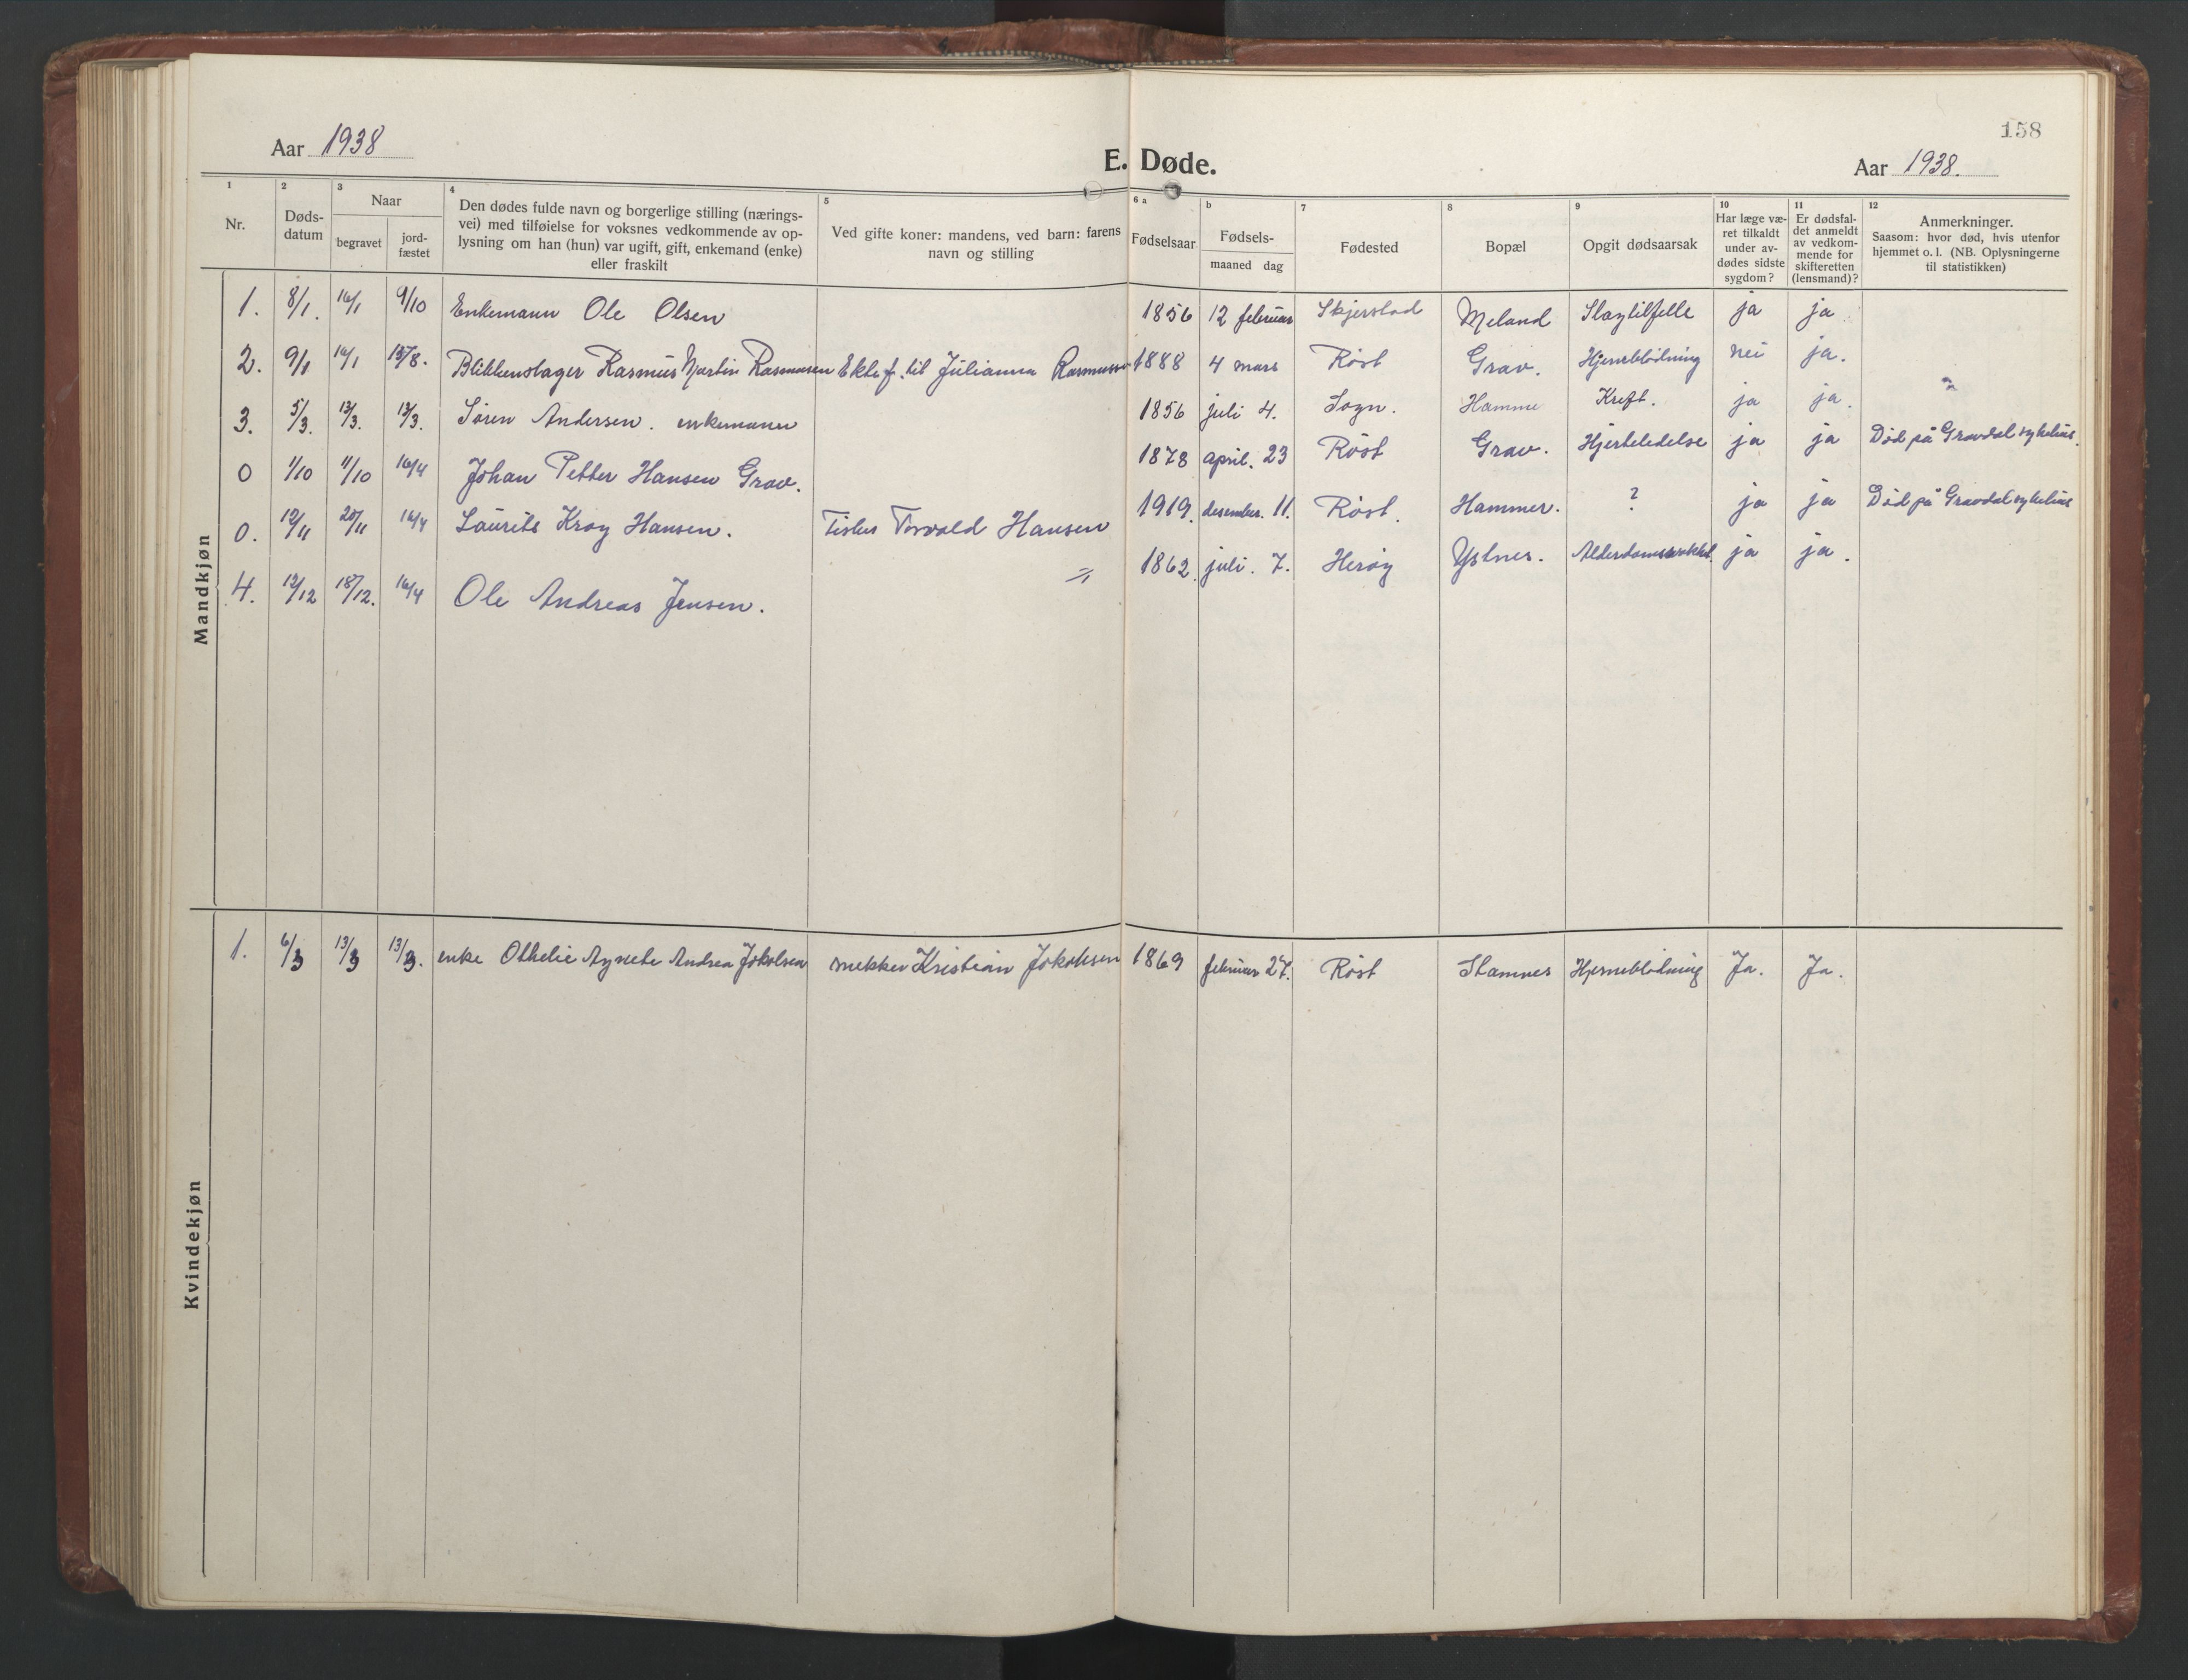 158
Aar 1938
E. Døde.
Aar 1938.
1
Nr.
2
Døds-
datum
3
Naar
begravet
jord-
fæstet
4
Den dødes fulde navn og borgerlige stilling (nærings-
vei) med tilføielse for voksnes vedkommende av op-
lysning om han (hun) var ugift, gift, enkemand (enke)
eller fraskilt
5
Ved gifte koner: mandens, ved barn: farens
navn og stilling
6 a
Fødselsaar
b
Fødsels-
maaned dag
7
Fødested
8
Bopæl
9
Opgit dødsaarsak
10
Har læge væ-
ret tilkaldt
under av-
dødes sidste
sygdom?
11
Er dødsfal-
det anmeldt
av vedkom-
mende for
skifteretten
(lensmand)?
12
Anmerkninger.
Saasom: hvor død, hvis utenfor
hjemmet o. l. (NB. Oplysningerne
til statistikken)
Mandkjøn
1. 8/1. 16/1 9/10 Enkemann Ole Olsen 1856 12 februar Skjerstad Meland Slagtilfelle ja ja
2. 9/1 16/1 Blikkenslager Rasmus Martin Rasmussen Ektef. til Julianna Rasmussen 1888 4 mars Röst Grav. Hjerneblödning nei ja.
3. 5/3. 13/3. 13/3. Sören Andersen. enkemann 1856 juli 4. Sogn. Hamme Kreft. ja ja.
0 1/10 11/10 16/4 Johan Petter Hansen Grav. 1878 april. 23 Röst Grav. Hjertelidelse ja ja Död på Gravdal sykehus.
0. 12/11 20/11 16/4 Laurits Kroy Hansen. Torvald Hansen 1919. desember. 11. Röst. Hammer. ? ja ja Död på Gravdal sykehus
4. 12/12 18/12. 16/4 Ole Andreas Jensen. 1862. juli. 7. Heröy Ystnes. ja ja.
Kvindekjøn
1. 6/3 13/3 13/3. enke Othelie Agnete Andrea Jakobsen snekker Kristian Jakobsen 1869 februar 27. Röst Stamnes Hjerneblödning Ja. Ja.